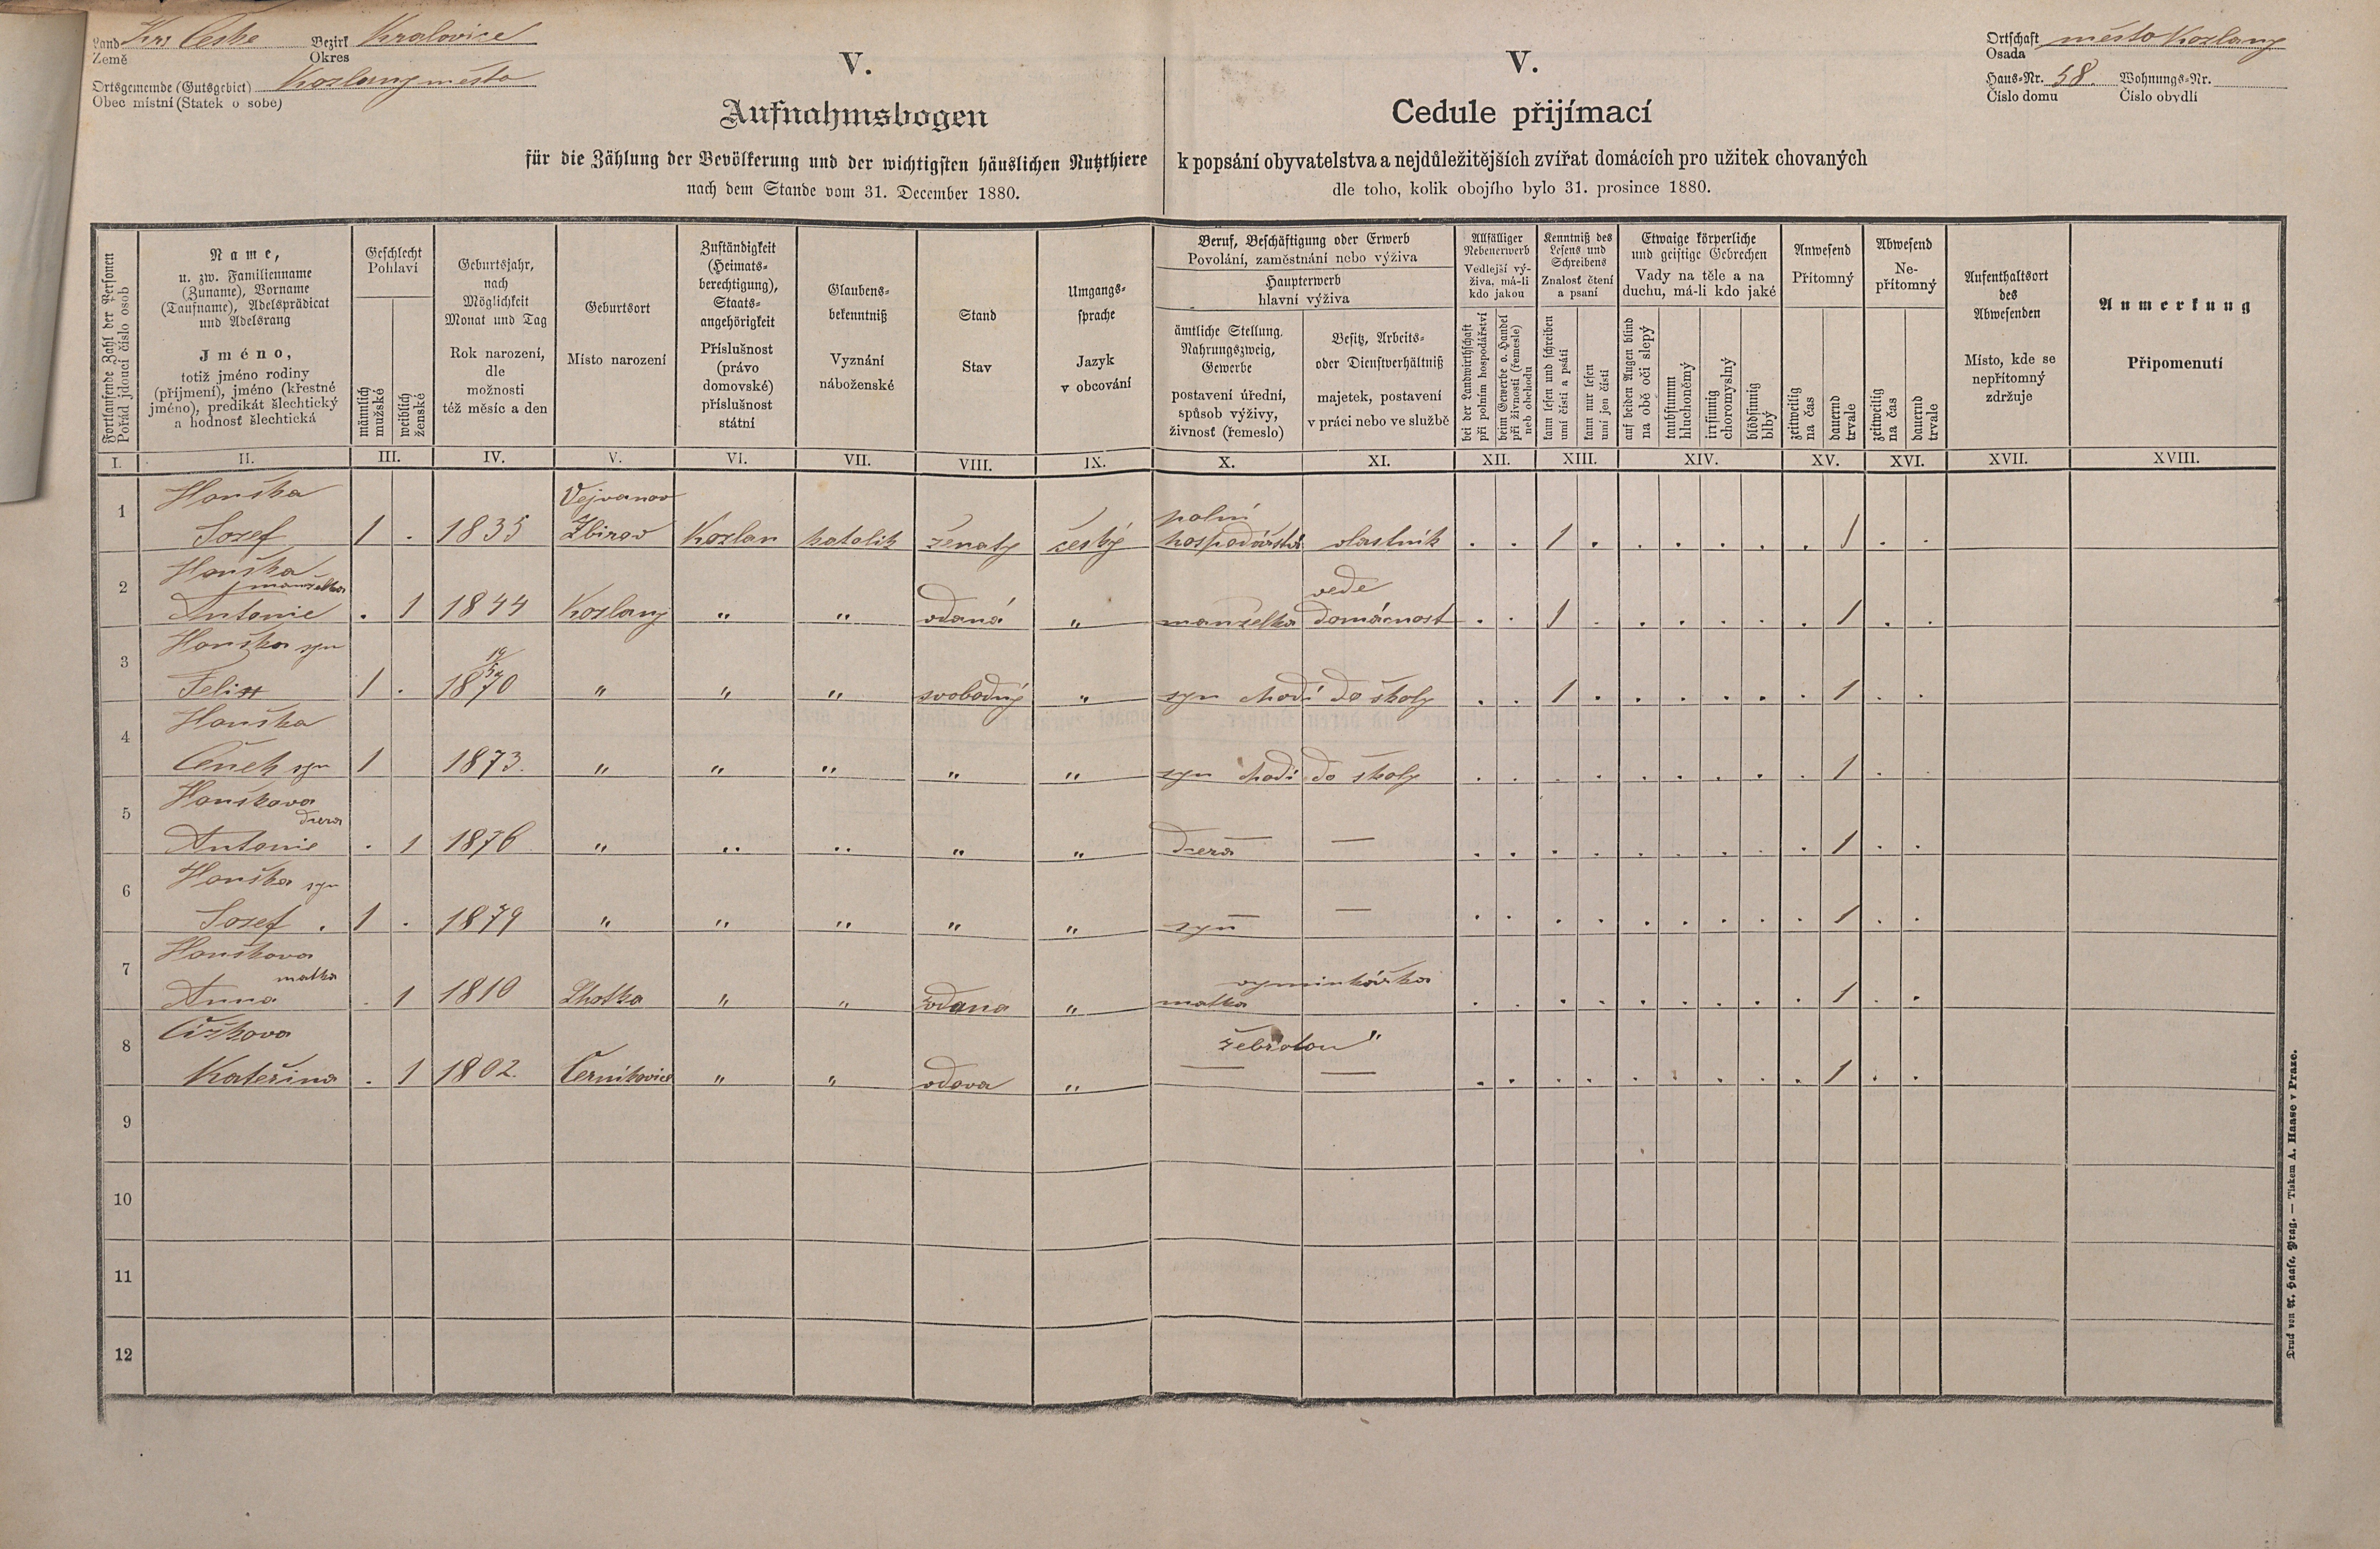 Land Krs Česke Bezirk Kralovice
Země Okres
Ortsgemeinde (Gutsgebiet) Kozlany město
Obec místní (Statek o sobě)
V.
Aufnahmsbogen
für die Zählung der Bevölkerung und der wichtigsten häuslichen Nutzthiere
nach dem Stande vom 31. December 1880.
V.
Cedule přijímací
k popsání obyvatelstva a nejdůležitějších zvířat domácích pro užitek chovaných
dle toho, kolik obojího bylo 31. prosince 1880.
Ortschaft město Kozlany
Osada
Haus-Nr. 58. Wohnungs-Nr.
Číslo domu Číslo obydlí
Fortlaufende Zahl der Personen
Pořád jdoucí číslo osob
Name,
u. zw. Familienname
(Zuname), Vorname
(Taufname), Adelsprädicat
und Adelsrang
Jméno,
totiž jméno rodiny
(příjmení), jméno (křestné
jméno), predikát šlechtický
a hodnosť šlechtická
Geschlecht
Pohlaví
männlich
mužské
weiblich
ženské
Geburtsjahr,
nach
Möglichkeit
Monat und Tag
Rok narození,
dle
možnosti
též měsíc a den
Geburtsort
Místo narození
Zuständigkeit
(Heimats-
berechtigung),
Staats-
angehörigkeit
Příslušnost
(právo
domovské)
příslušnost
státní
Glaubens-
bekenntniß
Vyznání
náboženské
Stand
Stav
Umgangs-
sprache
Jazyk
v obcování
Beruf, Beschäftigung oder Erwerb
Povolání, zaměstnání nebo výživa
Haupterwerb
hlavní výživa
ämtliche Stellung.
Nahrungszweig,
Gewerbe
postavení úřední,
spůsob výživy,
živnosť (řemeslo)
Besitz, Arbeits-
oder Dienstverhältniß
majetek, postavení
v práci nebo ve službě
Allfälliger
Nebenerwerb
Vedlejší vý-
živa, má-li
kdo jakou
bei der Landwirthschaft
při polním hospodářství
beim Gewerbe o. Handel
při živnosti (řemesle)
neb obchodu
Kenntniß des
Lesens und
Schreibens
Znalosť čtení
a psaní
kann lesen und schreiben
umí čísti a psáti
kann nur lesen
umí jen čísti
Etwaige körperliche
und geistige Gebrechen
Vady na těle a na
duchu, má-li kdo jaké
auf beiden Augen blind
na obě oči slepý
taubstumm
hluchoněmý
irrsinnig
choromyslný
blödsinnig
blbý
Anwesend
Přítomný
zeitweilig
na čas
dauernd
trvale
Abwesend
Ne-
přítomný
zeitweilig
na čas
dauernd
trvale
Aufenthaltsort
des
Abwesenden
Místo, kde se
nepřítomný
zdržuje
Anmerkung
Připomenutí
I. II. III. IV. V. VI. VII. VIII. IX. X. XI. XII. XIII. XIV. XV. XVI. XVII. XVIII.
Houška Vejvanov polní
1 Jozef 1 . 1835 Zbirov Kozlan katolik ženatý český hospodářství vlastník . . 1 . . . . . . 1 . .
Houška
manželka vede
2 Antonie . 1 1844 Kozlany " " vdaná " manželka domácnost . . 1 . . . . . . 1 . .
Houška syn 14/5
3 Felix 1 . 1870 " " " svobodný " syn chodí do školy . . 1 . . . . . . 1 . .
Houška
4 Čeněk syn 1 1873. " " " " " syn chodí do školy . . . . . . . . . 1 . .
Houškova
dcera
5 Antonie . 1 1876 " " " " " dcera — — . . . . . . . . . 1 . .
Houška syn
6 Jozef . 1 . 1879 " " " " " syn — — . . . . . . . . . 1 . .
Houškova
matka vyminkářka
7 Anna . 1 1810 Lhotka " " vdana " matka . . . . . . . . . 1 . .
Čížkova žebrotou "
8 Kateřina . 1 1802. Černíkovice " " vdova " — — . . . . . . . . . 1 . .
9
10
11
12
Druck von A. Haase, Prag. — Tiskem A. Haase v Praze.